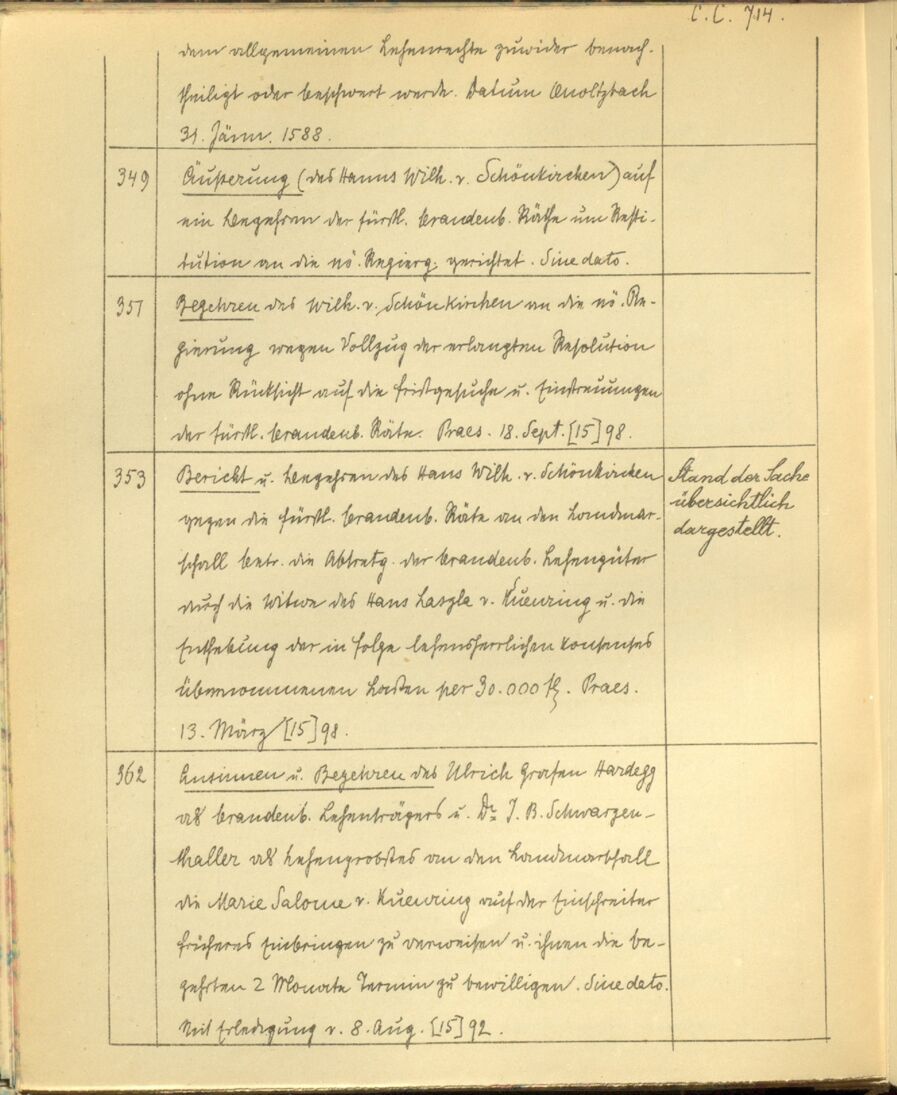 C. C. 714.
dem allgemeinen Lehenrechte zuwider benach-
theiligt oder beschwert werde. Datum Onoltzbach
31. Jänn. 1588.
349 Äußerung (des Hanns Wilh. v. Schönkirchen) auf
ein Begehren der fürstl. brandenb. Räthe um Resti-
tution an die nö. Regierg. gerichtet. Sine dato.
351 Begehren des Wilh. v. Schönkirchen an die nö. Re-
gierung wegen Vollzug der erlangten Resolution
ohne Rücksicht auf die Fristgesuche u. Einstreuungen
der fürstl. brandenb. Räte. Praes. 18. Sept. [15]98.
353 Bericht u. Begehren des Hans Wilh. v. Schönkirchen
gegen die fürstl. brandenb. Räte an den Landmar-
schall betr. die Abtretg. der brandenb. Lehengüter
durch die Witwe des Hans Laszla v. Kuenring u. die
Enthebung der in Folge lehensherrlichen Konsenses
übernommenen Lasten per 30.000 fl. Praes.
13. März [15]98.
Stand der Sache
übersichtlich
dargestellt.
362 Ansinnen u. Begehren des Ulrich Grafen Hardegg
als brandenb. Lehenträgers u. Dr. J. B. Schwarzen-
thaller als Lehenprobstes an den Landmarschall
die Marie Salome v. Kuenring auf der Einschreiter
früheres Einbringen zu verweisen u. ihnen die be-
gehrten 2 Monate Termin zu bewilligen. Sine dato.
Mit Erledigung v. 8. Aug. [15]92.